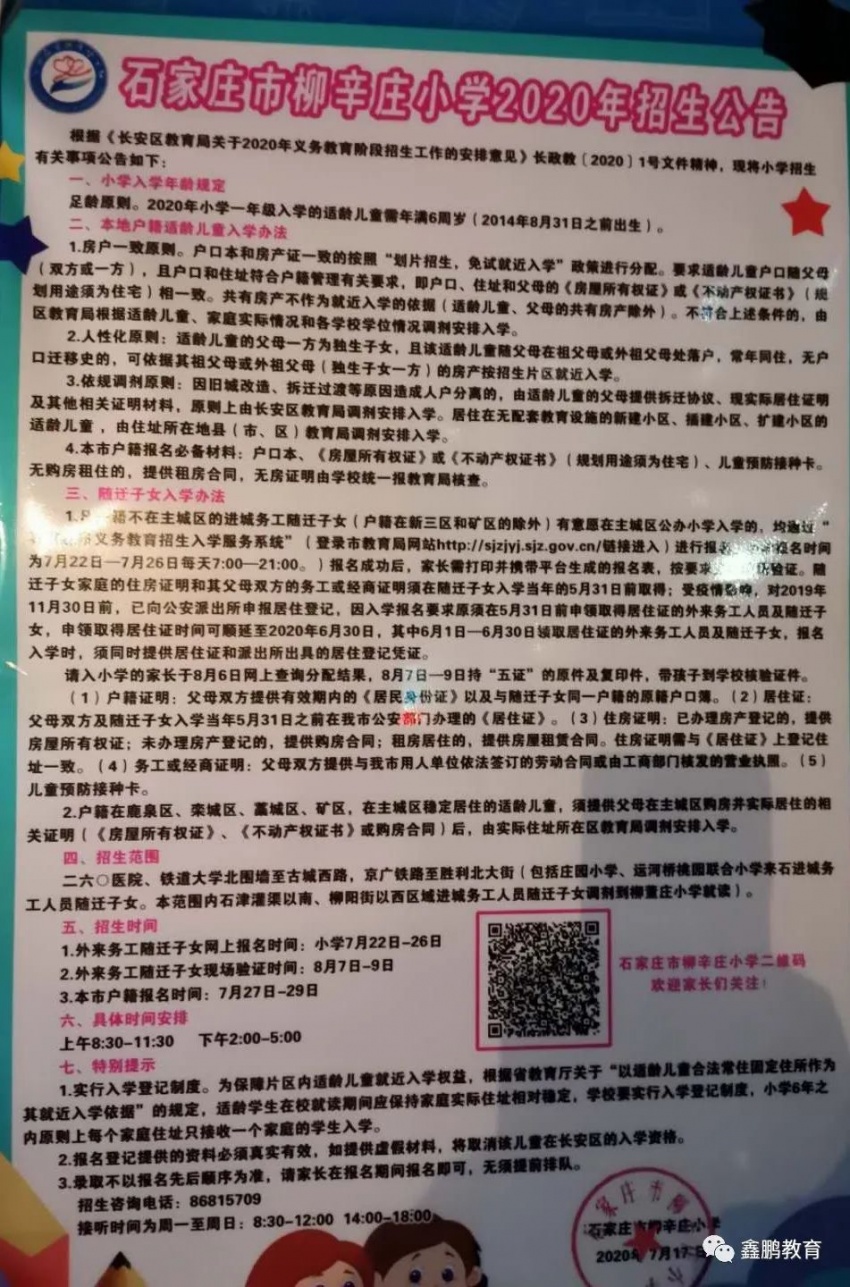 石家庄市柳辛庄小学2020年招生公告
根据《长安区教育局关于2020年义务教育阶段招生工作的安排意见》长政教〔2020〕1号文件精神，现将小学招生
有关事项公告如下：
一、小学入学年龄规定
足龄原则。2020年小学一年级入学的适龄儿童需年满6周岁（2014年8月31日之前出生）。
二、本地户籍适龄儿童入学办法
1.房户一致原则。户口本和房产证一致的按照“划片招生，免试就近入学”政策进行分配。要求适龄儿童户口随父母
（双方或一方），且户口和住址符合户籍管理有关要求，即户口、住址和父母的《房屋所有权证》或《不动产权证书》（规
划用途须为住宅）相一致。共有房产不作为就近入学的依据（适龄儿童、父母的共有房产除外）。不符合上述条件的，由
区教育局根据适龄儿童、家庭实际情况和各学校学位情况调剂安排入学。
2.人性化原则：适龄儿童的父母一方为独生子女，且该适龄儿童随父母在祖父母或外祖父母处落户，常年同住，无户
口迁移史的，可依据其祖父母或外祖父母（独生子女一方）的房产按招生片区就近入学。
3.依规调剂原则：因旧城改造、拆迁过渡等原因造成人户分离的，由适龄儿童的父母提供拆迁协议、现实际居住证明
及其他相关证明材料，原则上由长安区教育局调剂安排入学。居住在无配套教育设施的新建小区、插建小区、扩建小区的
适龄儿童，由住址所在地县（市、区）教育局调剂安排入学。
4.本市户籍报名必备材料：户口本、《房屋所有权证》或《不动产权证书》（规划用途须为住宅）、儿童预防接种卡。
无购房租住的，提供租房合同，无房证明由学校统一报教育局核查。
三、随迁子女入学办法
1.籍不在主城区的进城务工随迁子女（户籍在新三区和矿区的除外）有意愿在主城区公办小学入学的，均通过“
义务教育招生入学服务系统”（登录市教育局网站http://sjzjyj.sjz.gov.cn/链接进入）进行报名报名时间
为7月22日—7月26日每天7:00—21:00。）报名成功后，家长需打印并携带平台生成的报名表，按要求验证。随
迁子女家庭的住房证明和其父母双方的务工或经商证明须在随迁子女入学当年的5月31日前取得；受疫情影响，对2019年
11月30日前，已向公安派出所申报居住登记，因入学报名要求原须在5月31日前申领取得居住证的外来务工人员及随迁子
女，申领取得居住证时间可顺延至2020年6月30日，其中6月1日—6月30日领取居住证的外来务工人员及随迁子女，报名
入学时，须同时提供居住证和派出所出具的居住登记凭证。
请入小学的家长于8月6日网上查询分配结果，8月7日—9日持“五证”的原件及复印件，带孩子到学校核验证件。
（1）户籍证明：父母双方提供有效期内的《居民身份证》以及与随迁子女同一户籍的原籍户口簿。（2）居住证：
父母双方及随迁子女入学当年5月31日之前在我市公安部门办理的《居住证》。（3）住房证明：已办理房产登记的，提供
房屋所有权证；未办理房产登记的，提供购房合同；租房居住的，提供房屋租赁合同。住房证明需与《居住证》上登记住
址一致。（4）务工或经商证明：父母双方提供与我市用人单位依法签订的劳动合同或由工商部门核发的营业执照。（5）
儿童预防接种卡。
2.户籍在鹿泉区、栾城区、藁城区、矿区，在主城区稳定居住的适龄儿童，须提供父母在主城区购房并实际居住的相
关证明（《房屋所有权证》、《不动产权证书》或购房合同）后，由实际住址所在区教育局调剂安排入学。
四、招生范围
二六〇医院、铁道大学北围墙至古城西路，京广铁路至胜利北大街（包括庄园小学、运河桥桃园联合小学来石进城务
工人员随迁子女。本范围内石津灌渠以南、柳阳街以西区域进城务工人员随迁子女调剂到柳董庄小学就读）。
五、招生时间
1.外来务工随迁子女网上报名时间：小学7月22日-26日
2.外来务工随迁子女现场验证时间：8月7日-9日
3.本市户籍报名时间：7月27日-29日
石家庄市柳辛庄小学二维码
欢迎家长们关注！
六、具体时间安排
上午8:30-11:30 下午2:00-5:00
七、特别提示
1.实行入学登记制度。为保障片区内适龄儿童就近入学权益，根据省教育厅关于“以适龄儿童合法常住固定住所作为
其就近入学依据”的规定，适龄学生在校就读期间应保持家庭实际住址相对稳定，学校要实行入学登记制度，小学6年之
内原则上每个家庭住址只接收一个家庭的学生入学。
2.报名登记提供的资料必须真实有效，如提供虚假材料，将取消该儿童在长安区的入学资格。
3.录取不以报名先后顺序为准，请家长在报名期间报名即可，无须提前排队。
招生咨询电话：86815709
接听时间为周一至周日：8:30-12:00 14:00-18:00
石家庄市柳辛庄小学
2020年7月17日
鑫鹏教育